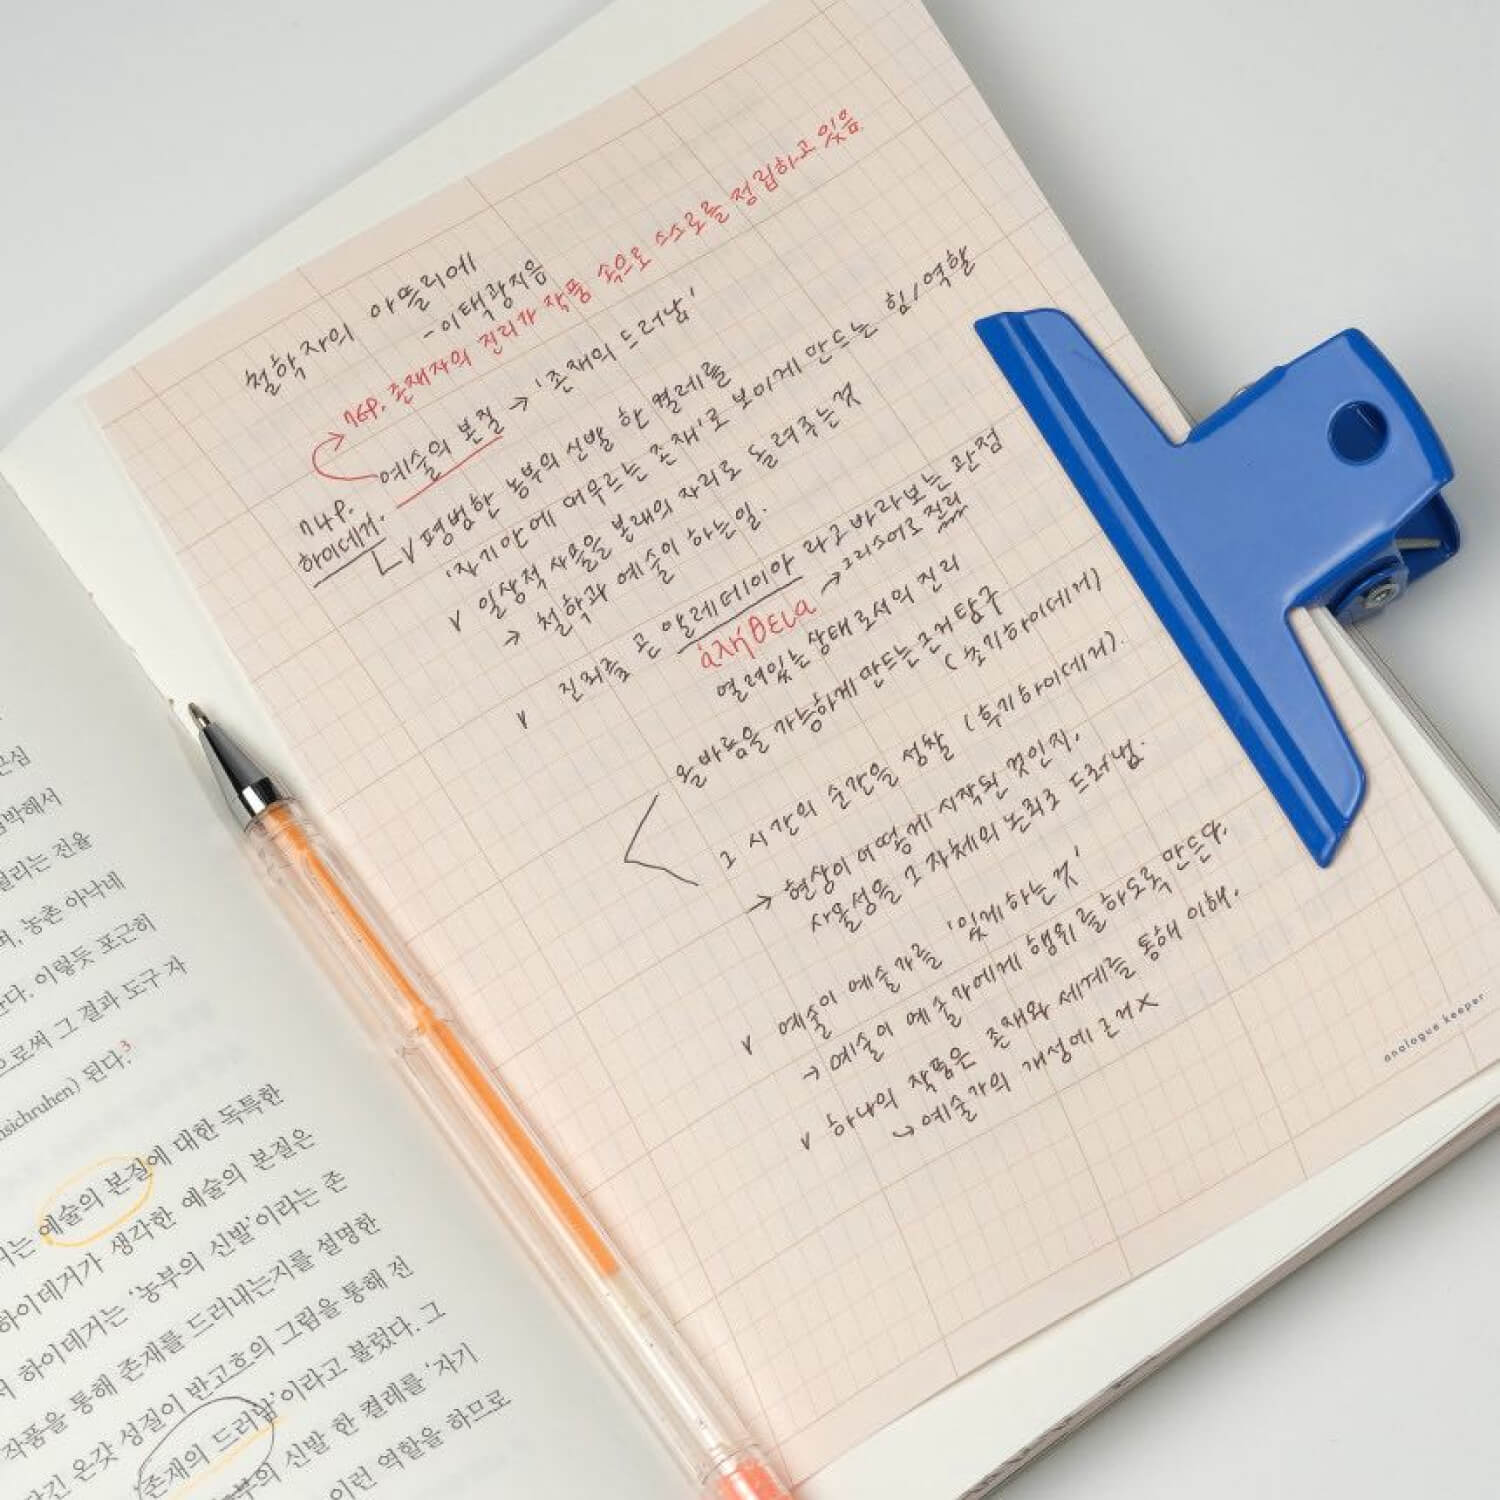 철학자의 아뜰리에
- 이택광지음
76P. 존재자의 진리가 작품 속으로 스스로를 정립하고 있음
예술의 본질 → '존재의 드러남'
74P.
하이데거.
V 평범한 농부의 신발 한 켤레를
'자기안에 머무르는 존재'로 보이게 만드는 힘/역할
V 일상적 사물을 본래의 자리로 돌려주는것
→ 철학과 예술이 하는일.
V 진리를 곧 알레테이아 라고 바라보는 관점
ἀλήθεια → 그리스어로 진리
열려있는 상태로서의 진리
올바름을 가능하게 만드는 근거 탐구
(초기하이데거)
그 시간의 순간을 성찰 (후기하이데거).
→ 현상이 어떻게 시작된 것인지,
사물성을 그 자체의 논리로 드러냄.
V 예술이 예술가를 '있게하는것'
→ 예술이 예술가에게 행위를하도록 만든다.
V 하나의 작품은 존재와 세계를 통해 이해.
↳ 예술가의 개성에 근거 X
analogue keeper
근심
박해서
리는 전율
며, 농촌 아낙네
다. 이렇듯 포근히
으로써 그 결과 도구 자
nsichruhen) 된다.3
거는 예술의 본질에 대한 독특한
하이데거가 생각한 예술의 본질은
서 하이데거는 '농부의 신발'이라는 존
작품을 통해 존재를 드러내는지를 설명한
긴 온갖 성질이 반고흐의 그림을 통해 전
'존재의 드러남'이라고 불렀다. 그
부의 신발 한 켤레를 '자기
이런 역할을 하므로